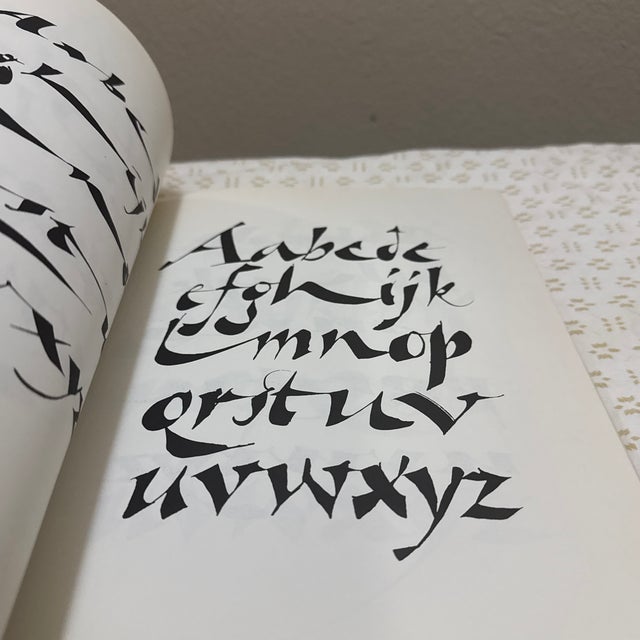 Aabcde
efghijk
lmnop
qrstuv
uvwxyz